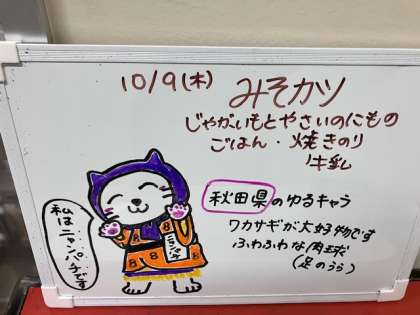 10/9(木) みそカツ
じゃがいもとやさいのにもの
ごはん・焼きのり
牛乳
秋田県のゆるキャラ
ワカサギが大好物です
ふわふわな肉球
(足のうら)
私は
ニャンパチです
8 8
8 8